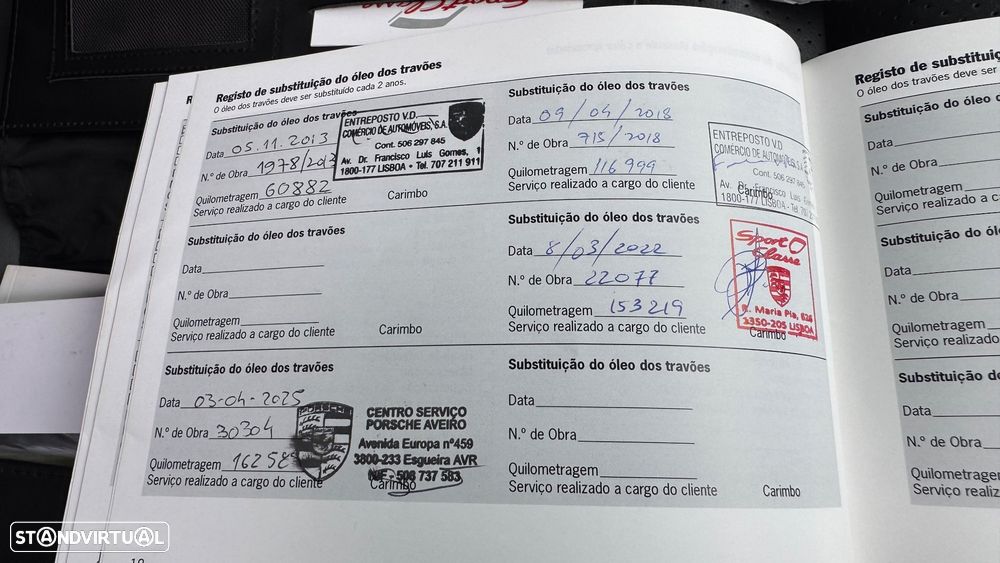 Sport Classe
Registo de substituição do óleo dos travões
O óleo dos travões deve ser substituído cada 2 anos.
Substituição do óleo dos travões
Data 05.11.2013
N.º de Obra 1978/2013
Quilometragem 60882
Serviço realizado a cargo do cliente
Carimbo
ENTREPOSTO V.D.
COMÉRCIO DE AUTOMÓVEIS, S.A.
Cont. 506 297 845
Av. Dr. Francisco Luís Gomes, 1
1800-177 LISBOA • Tel. 707 211 911
Substituição do óleo dos travões
Data 09/04/2018
N.º de Obra 715/2018
Quilometragem 116 999
Serviço realizado a cargo do cliente
Carimbo
ENTREPOSTO V.D
COMÉRCIO DE AUTOMÓVEIS
Cont. 506 297 845
Av. Dr. Francisco Luís Gomes
1800-177 LISBOA - Tel. 707 211
Substituição do óleo dos travões
Data
N.º de Obra
Quilometragem
Serviço realizado a cargo do cliente
Carimbo
Substituição do óleo dos travões
Data 8/03/2022
N.º de Obra 22077
Quilometragem 153219
Serviço realizado a cargo do cliente
Carimbo
Sport
Classe
R. Maria Pia, 626
1350-205 LISBOA
Substituição do óleo dos travões
Data 03-04-2025
N.º de Obra 30304
Quilometragem 16258
Serviço realizado a cargo do cliente
Carimbo
PORSCHE
CENTRO SERVIÇO
PORSCHE AVEIRO
Avenida Europa nº459
3800-233 Esgueira AVR
NIF - 506 737 583
Substituição do óleo dos travões
Data
N.º de Obra
Quilometragem
Serviço realizado a cargo do cliente
Carimbo
Registo de substituiç
O óleo dos travões deve ser
Substituição do óle
Data
N.º de Obra
Quilometragem
Serviço realizado
Substituição do óle
Data
N.º de Obra
Quilometragem
Serviço realizado
Substituição do
Data
N.º de Obra
Quilometragem
Serviço realiz
STANDVIRTUAL